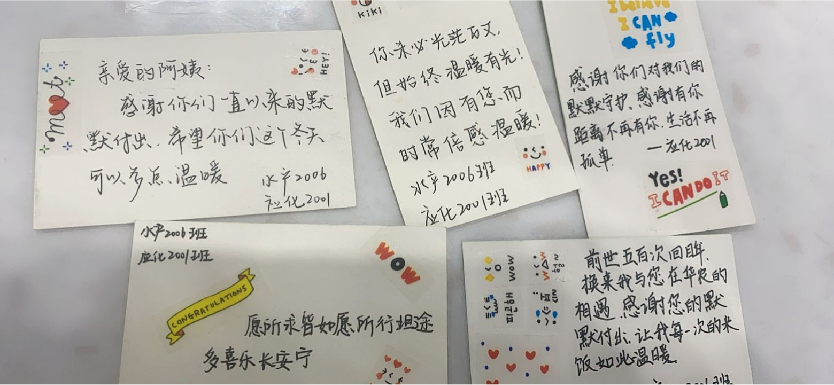 亲爱的阿姨:
感谢你们一直以来的默
默付出、希望你们这个冬天
可以多点温暖
水产2006
应化2001
HEY!
kiki
你未必光芒万丈
但始终温暖有光!
我们因有您而
时常倍感温暖!
水产2006班
应化2001班
HAPPY
I believe
I CAN
fly
感谢你们对我们的
默默守护、感谢有你
距离不再有你、生活不再
孤单.
—应化2001
Yes!
I CAN DO IT
水产2006班
应化2001班
WOW
CONGRATULATIONS
愿所求皆如愿所行坦途
多喜乐长安宁
WOW
前世五百次回眸、
换来我与您在华农的
相遇、感谢您的默
默付出、让我每一次的米
饭如此温暖.
水产2006班